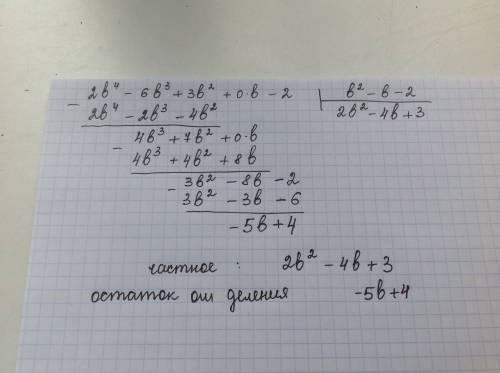 2b⁴ - 6b³ + 3b² + 0·b - 2 | b² - b - 2
- 2b⁴ - 2b³ - 4b² 2b² - 4b + 3
4b³ + 7b² + 0·b
- 4b³ + 4b² + 8b
3b² - 8b - 2
- 3b² - 3b - 6
-5b + 4
частное : 2b² - 4b + 3
остаток от деления -5b+4